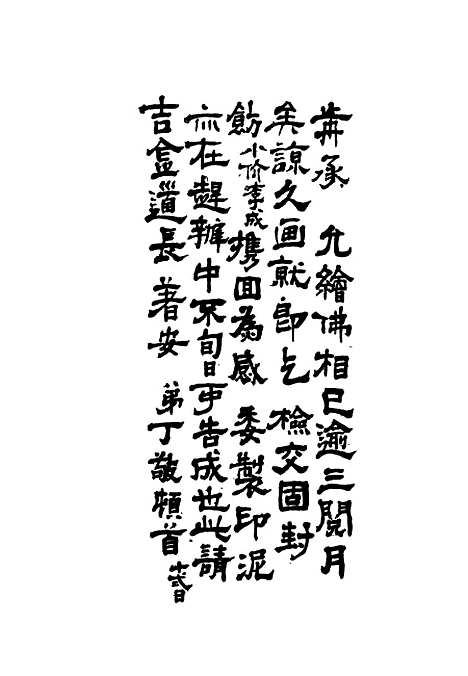 冓承　允繪佛相已逾三閱月
矣諒久画就即乞　檢交固封
飭小价李成携回為感　委製印泥
亦在趕辦中不旬日可告成也此請
吉盦道長　著安　弟丁敬頓首　十弍日